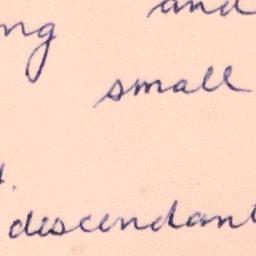 and
ng
small
descendant